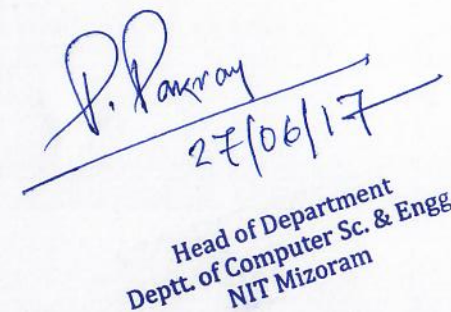 P. Pakray
27/06/17
Head of Department
Deptt. of Computer Sc. & Engg
NIT Mizoram